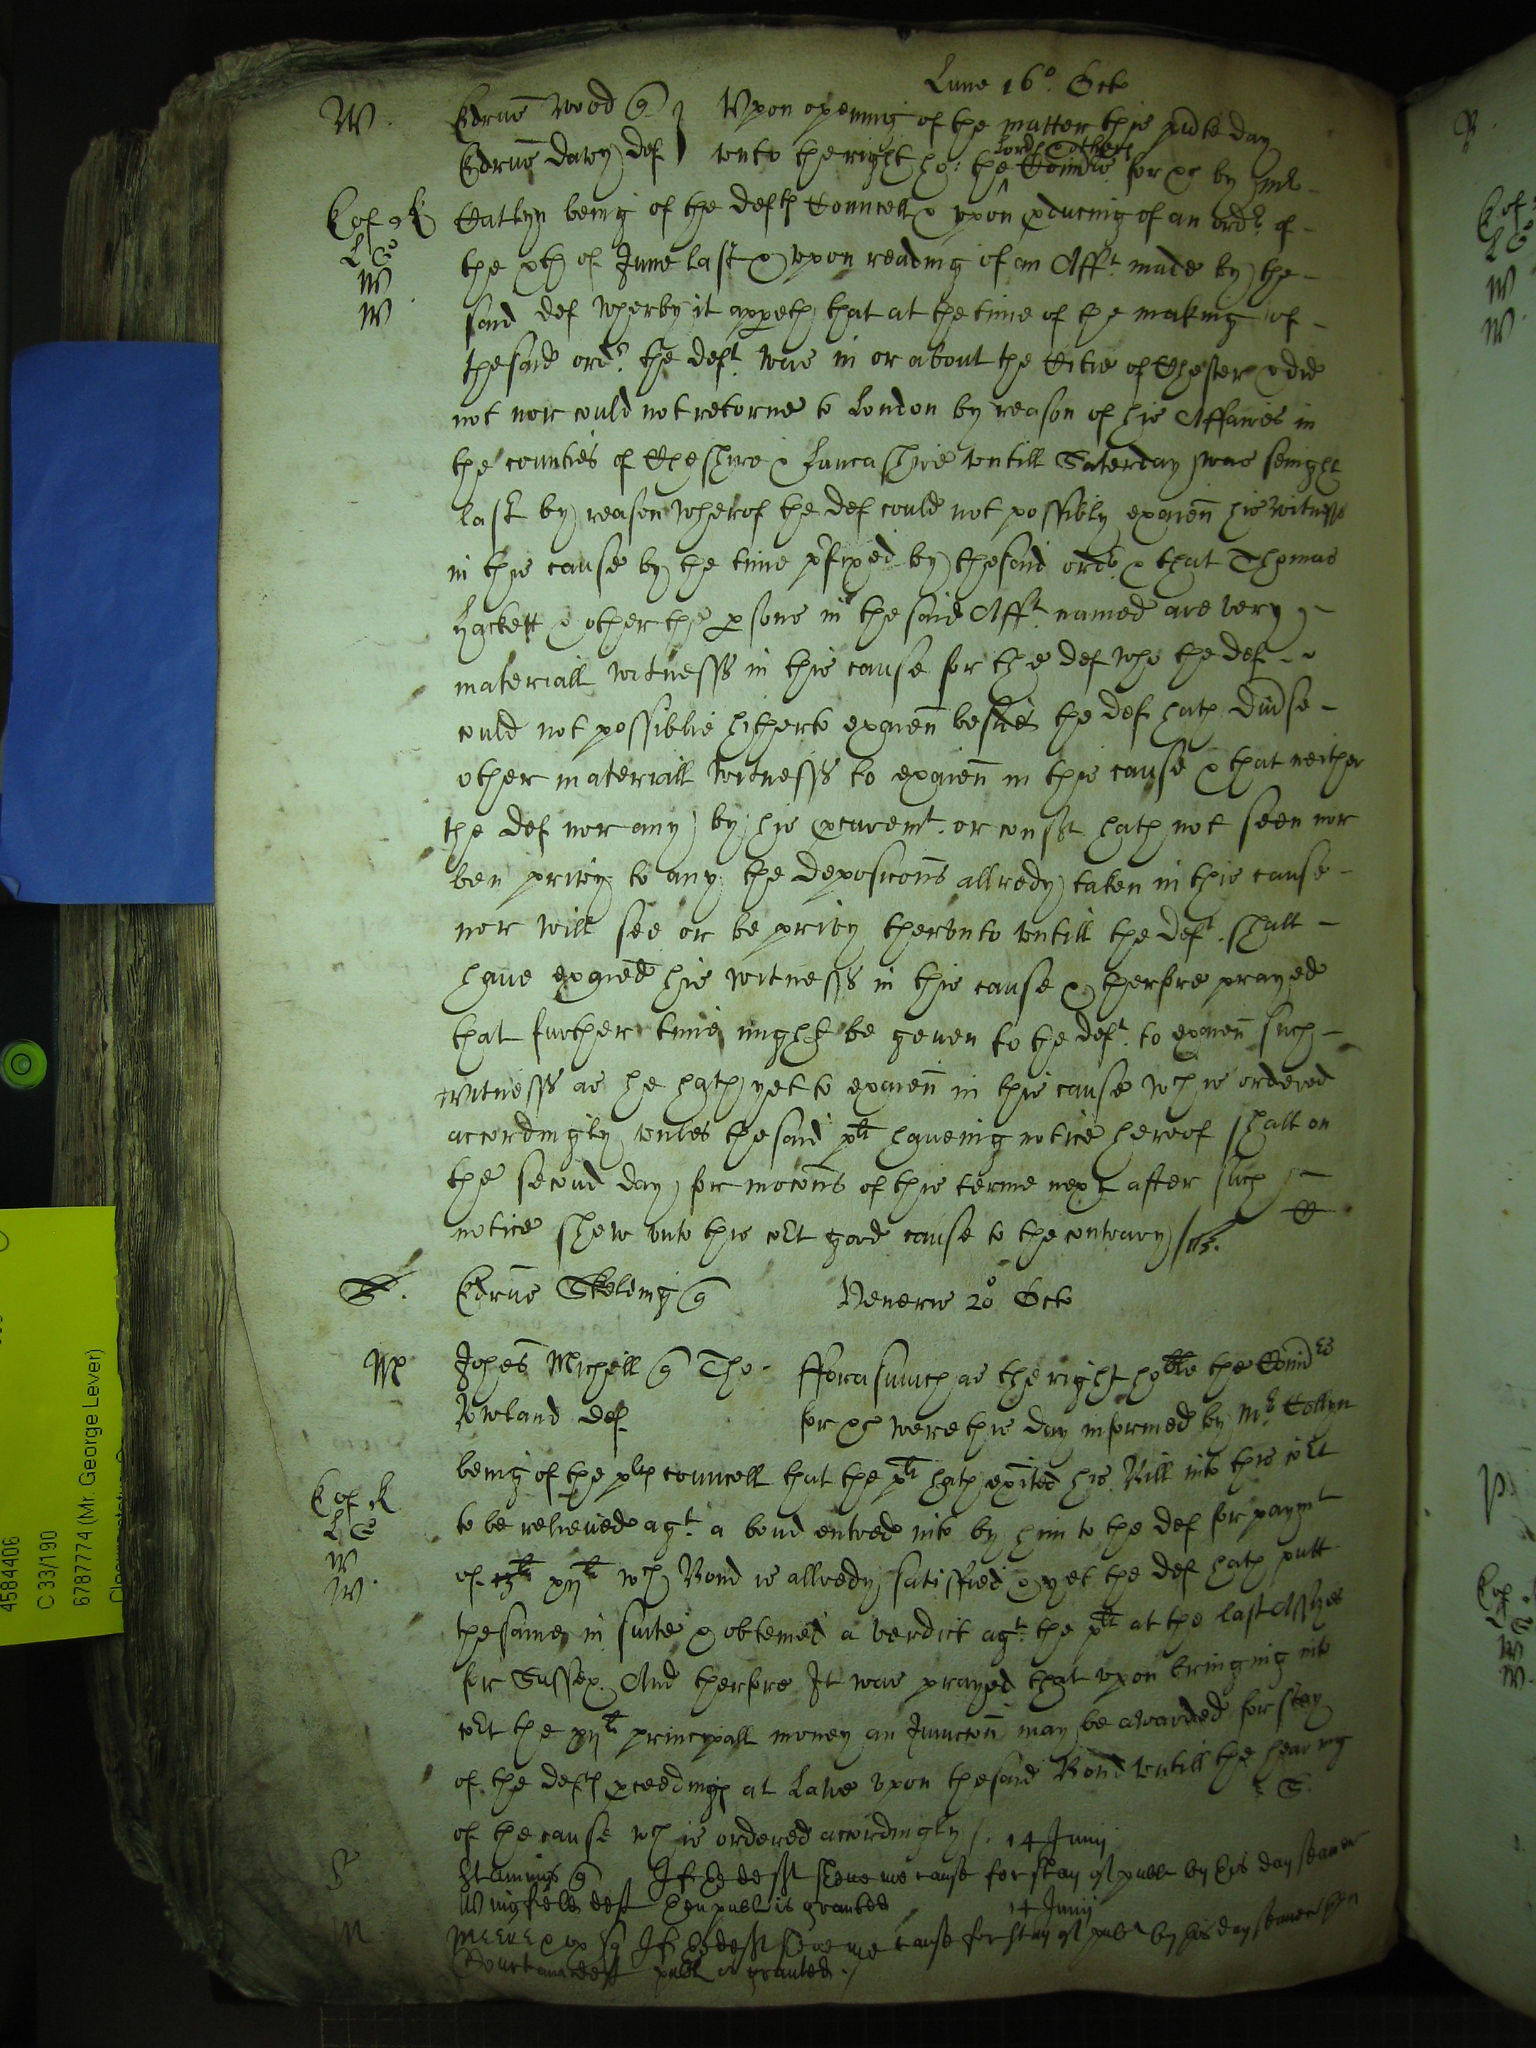 Lune 16º. Octo
W. Edrūs Wood q Vpon opening of the matter this pñte day
Edrūs davy def vnto the right ho: the lords & others Comīs for &c by Mr
E of K Catlyn being of the defts Councell & vpon pducing of an ordr. of
L C the xth of June last & vpon reading of an Afft. made by the
W said def wherby it appeth that at the time of the making of
W the said ordr. the deft. was in or about the Citie of Chester & did
not nor could not retorne to London by reason of his Affaires in
the counties of Cheshire & Lancashire vntill Saterday was senight
last by reason wherof the def could not possibly exaien his witness
in this cause by the time pfixed by the said ordr & that Thomas
Hackett & other the psons in the said Afft. named are very
materiall witnesss in this cause for the def who the def
could not possiblie hitherto exaien besids the def hath divse
other materiall witnesss to exaien in this cause & that neither
the def nor any by his pcuremt. or consst hath not seen nor
ben privy to any the deposicons allredy taken in this cause
nor will see or be privy thervnto vntill the deft. shall
haue exaied his witnesss in this cause & therfore prayed
that further time might be geuen to the deft. to exaien such
witnesss as he hath yet to exaien in this cause wch is ordered
accordingly vnles the said plt haueing notice hereof shall on
the second day for mocons of this terme next after such
notice shew vnto this cort good cause to the contrary
S. Edrūs Skeling q Veneris 20º Octo
M Johes Michell q Tho. fforasmuch as the right hoble the Comīdrs
Rowland def for &c were this day informed by Mr. Catlyn
being of the plts councell that the plt hath exited his Bill into this cort
E of K to be relieued agt. a bond entred into by him to the def for paymt
L C of xijli wch Bond is allredy satisfied & yet the def hath putt
W the same in suite & obteined a verdict agt. the plt at the last Assizes
W. for Sussex. And therfore It was prayed that vpon bringing into
cort the xijli principall money an Iniuncon may be awarded for stay
of the defts pceedings at Lawe vpon the said Bond vntill the hearing
of the cause wch is ordered accordingly 14 Junij
S q If the deft shewe me cause for stay of publ by this day seavenn
Wingfield deft then publ is granted 14 Junij
M. q If the deft shewe me cause for stay of publ by this day seavenn then
deft publ is granted.
4584406
C 33/190
6787774 (Mr. George Lever)